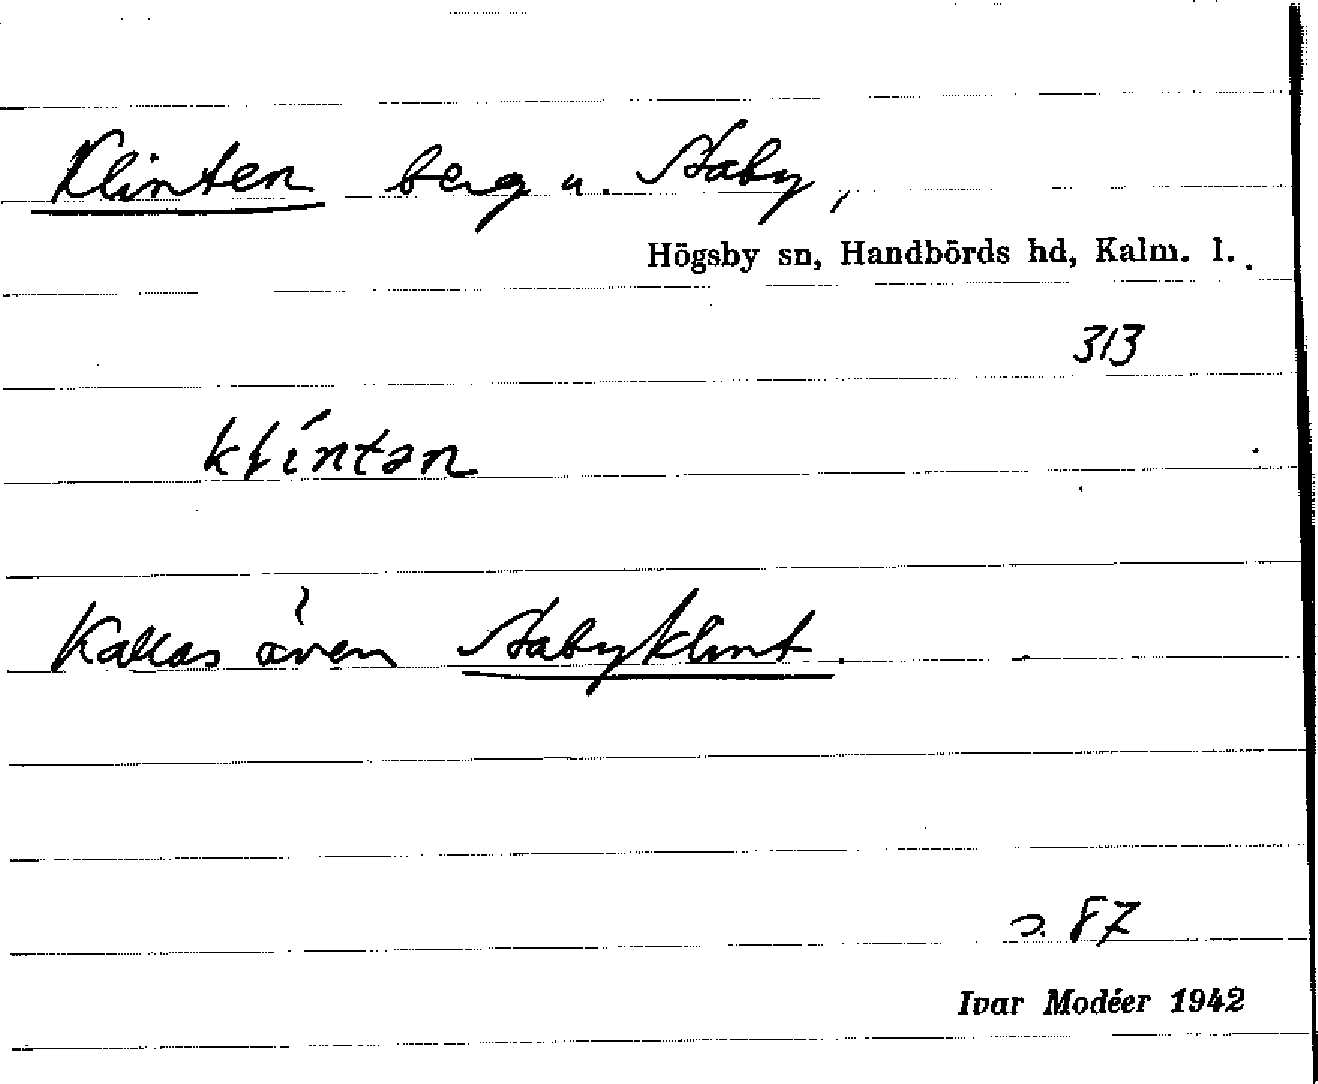 Klinten berg u. Staby,
Högsby sn, Handbörds hd, Kalm. l.
313
klíntən
Kallas även Stabyklint.
s. 87
Ivar Modéer 1942